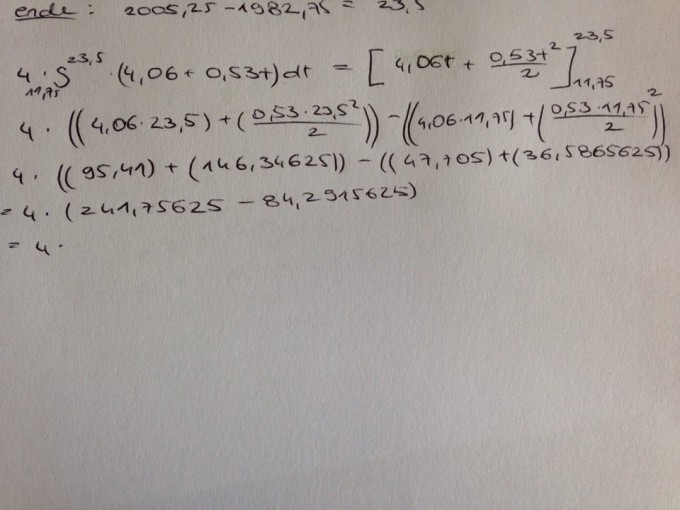 ende : 2005,25 - 1982,75 = 23,5
4 · ∫_{11,75}^{23,5} · (4,06 + 0,53t) dt = [4,06t + \frac{0,53t^2}{2}]_{11,75}^{23,5}
4 · ((4,06 · 23,5) + (\frac{0,53 · 23,5^2}{2})) - ((4,06 · 11,75) + (\frac{0,53 · 11,75^2}{2}))
4 · ((95,41) + (146,34625)) - ((47,705) + (36,5865625))
= 4 · (241,75625 - 84,2915625)
= 4 ·